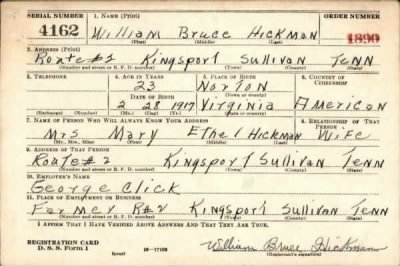 SERIAL NUMBER 1. NAME (Print) ORDER NUMBER
4162 William Bruce Hickman 1890
(First) (Middle) (Last)
2. ADDRESS (Print)
Route #2 Kingsport Sullivan Tenn
(Number and street or R. F. D. number) (Town) (County) (State)
3. TELEPHONE 4. AGE IN YEARS 5. PLACE OF BIRTH 6. COUNTRY OF CITIZENSHIP
23 Norton
DATE OF BIRTH (Town or county)
2 28 1917 Virginia American
(Exchange) (Number) (Mo.) (Day) (Yr.) (State or country)
7. NAME OF PERSON WHO WILL ALWAYS KNOW YOUR ADDRESS 8. RELATIONSHIP OF THAT PERSON
Mrs Mary Ethel Hickman Wife
(Mr., Mrs., Miss) (First) (Middle) (Last)
9. ADDRESS OF THAT PERSON
Route #2 Kingsport Sullivan Tenn
(Number and street or R. F. D. number) (Town) (County) (State)
10. EMPLOYER'S NAME
George Click
11. PLACE OF EMPLOYMENT OR BUSINESS
Farmer R#2 Kingsport Sullivan Tenn
(Number and street or R. F. D. number) (Town) (County) (State)
I AFFIRM THAT I HAVE VERIFIED ABOVE ANSWERS AND THAT THEY ARE TRUE.
REGISTRATION CARD
D. S. S. Form 1 (over) 16-17105 William Bruce Hickman
(Registrant's signature)